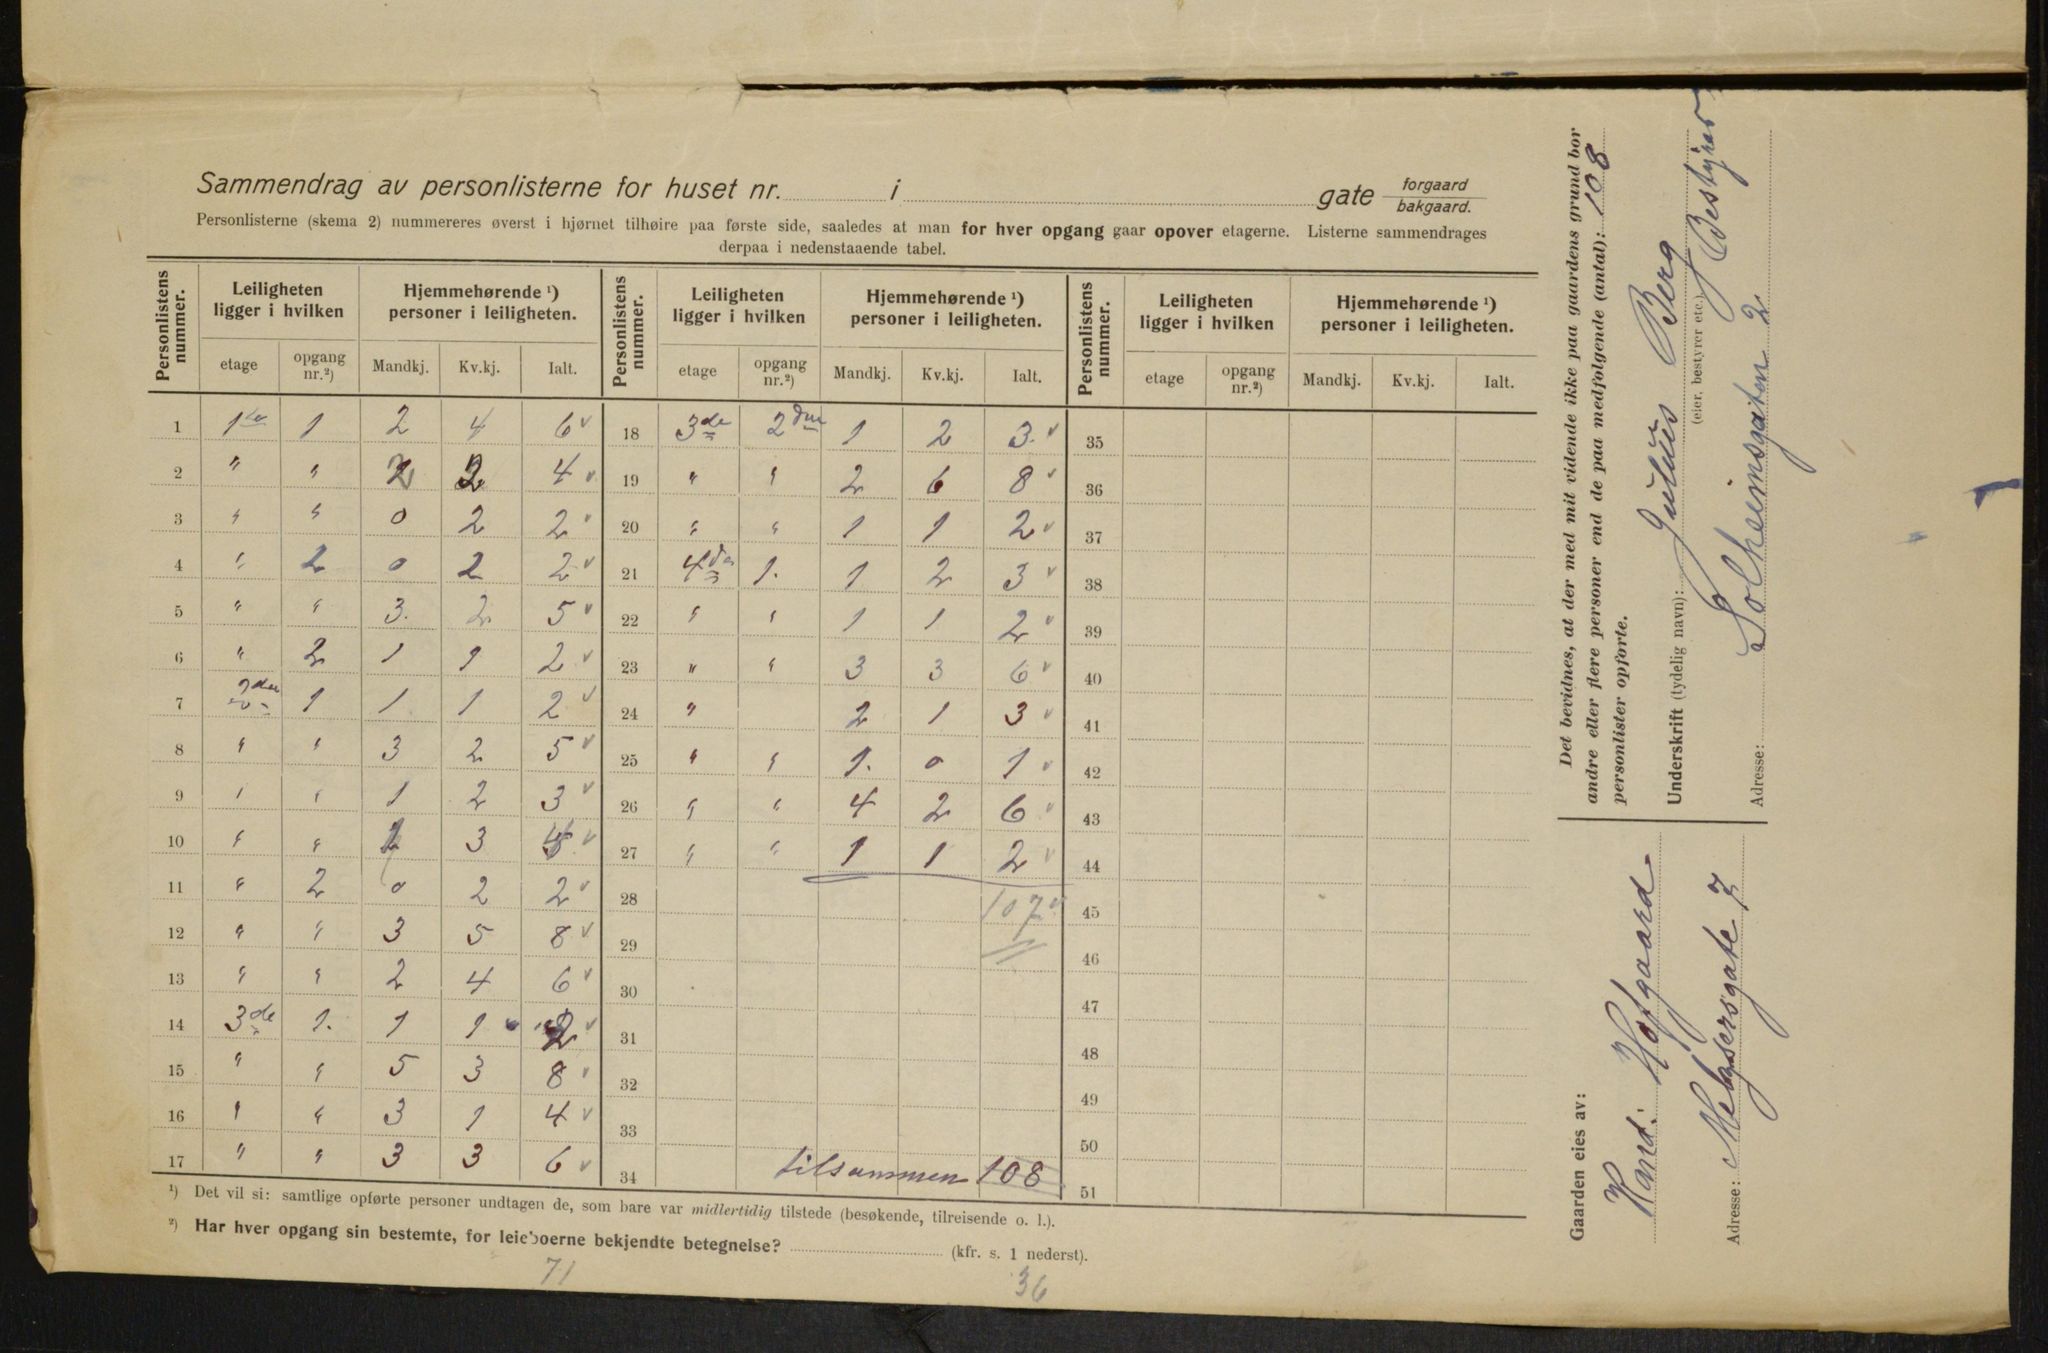 Sammendrag av personlisterne for huset nr. i gate forgaard bakgaard.
Personlisterne (skema 2) nummereres øverst i hjørnet tilhøire paa første side, saaledes at man for hver opgang gaar opover etagerne. Listerne sammendrages
derpaa i nedenstaaende tabel.
Personlistens nummer. Leiligheten ligger i hvilken Hjemmehørende ¹) personer i leiligheten. Personlistens nummer. Leiligheten ligger i hvilken Hjemmehørende ¹) personer i leiligheten. Personlistens nummer. Leiligheten ligger i hvilken Hjemmehørende ¹) personer i leiligheten.
etage opgang nr.²) Mandkj. Kv.kj. Ialt. etage opgang nr.²) Mandkj. Kv.kj. Ialt. etage opgang nr.²) Mandkj. Kv.kj. Ialt.
1 1 1 2 4 6 v 18 3de 2den 1 2 3 v 35
2 " " 2 2 4 v 19 " " 2 6 8 v 36
3 " " 0 2 2 v 20 " " 1 1 2 v 37
4 " 2 0 2 2 v 21 4de 1. 1 2 3 v 38
5 " " 3. 2 5 v 22 " " 1 1 2 v 39
6 " 2 1 1 2 v 23 " " 3 3 6 v 40
7 2den 1 1 1 2 v 24 " 2 1 3 v 41
8 " " 3 2 5 v 25 " " 1. 0 1 v 42
9 " " 1 2 3 v 26 " " 4 2 6 v 43
10 " " 1 3 4 v 27 " " 1 1 2 v 44
11 " 2 0 2 2 v 28 107 v 45
12 " " 3 5 8 v 29 46
13 " " 2 4 6 v 30 47
14 3de 1. 1 1 2 v 31 48
15 " " 5 3 8 v 32 49
16 " " 3 1 4 v 33 50
17 " " 3 3 6 v 34 tilsammen 108 51
¹) Det vil si: samtlige opførte personer undtagen de, som bare var midlertidig tilstede (besøkende, tilreisende o. l.).
²) Har hver opgang sin bestemte, for leieboerne bekjendte betegnelse? (kfr. s. 1 nederst).
71 36
Det bevidnes, at der med mit vidende ikke paa gaardens grund bor
andre eller flere personer end de paa medfølgende (antal): 108
personlister opførte.
Underskrift (tydelig navn): Julius Berg
(eier, bestyrer etc.) Bestyrer
Adresse: Solheimsgaten 2
Gaarden eies av:
Hofgaard
Adresse: Meltzersgate 7